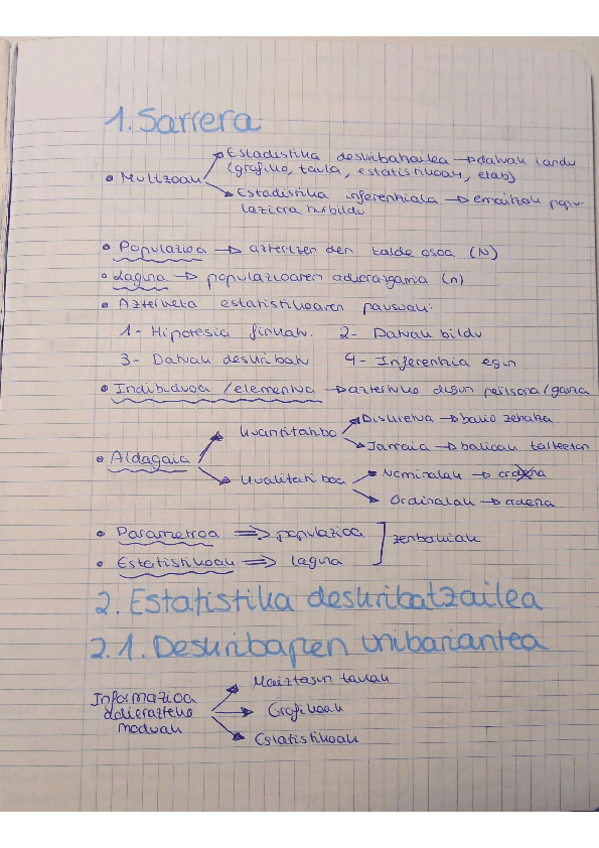 1. Sarrera
• Multzoak
→ Estadistika deskribatzailea → datuak landu
(grafiko, taula, estatistikoak, etab)
→ Estadistika inferentziala → emaitzak popu-
laziora hurbildu
• Populazioa → aztertzen den talde osoa (N)
• Lagina → populazioaren adierazgarria (n)
• Azterketa estatistikoaren pausuak:
1- Hipotesia finkatu. 2- Datuak bildu
3- Datuak deskribatu 4- Inferentzia egin
• Indibiduoa / elementua → aztertuko dugun pertsona / gauza
• Aldagaia
→ Kuantitatiboa
→ Diskretua → balio zehatza
→ Jarraia → balioak tarteetan
→ Kualitatiboa
→ Nominalak →
→ Ordinalak → ordena
• Parametroa ⇒ populazioa
• Estatistikoak ⇒ lagina
] zenbakiak
2. Estatistika deskribatzailea
2.1. Deskribapen unibariantea
Informazioa
adierazteko
moduak
→ Maiztasun taulak
→ Grafikoak
→ Estatistikoak